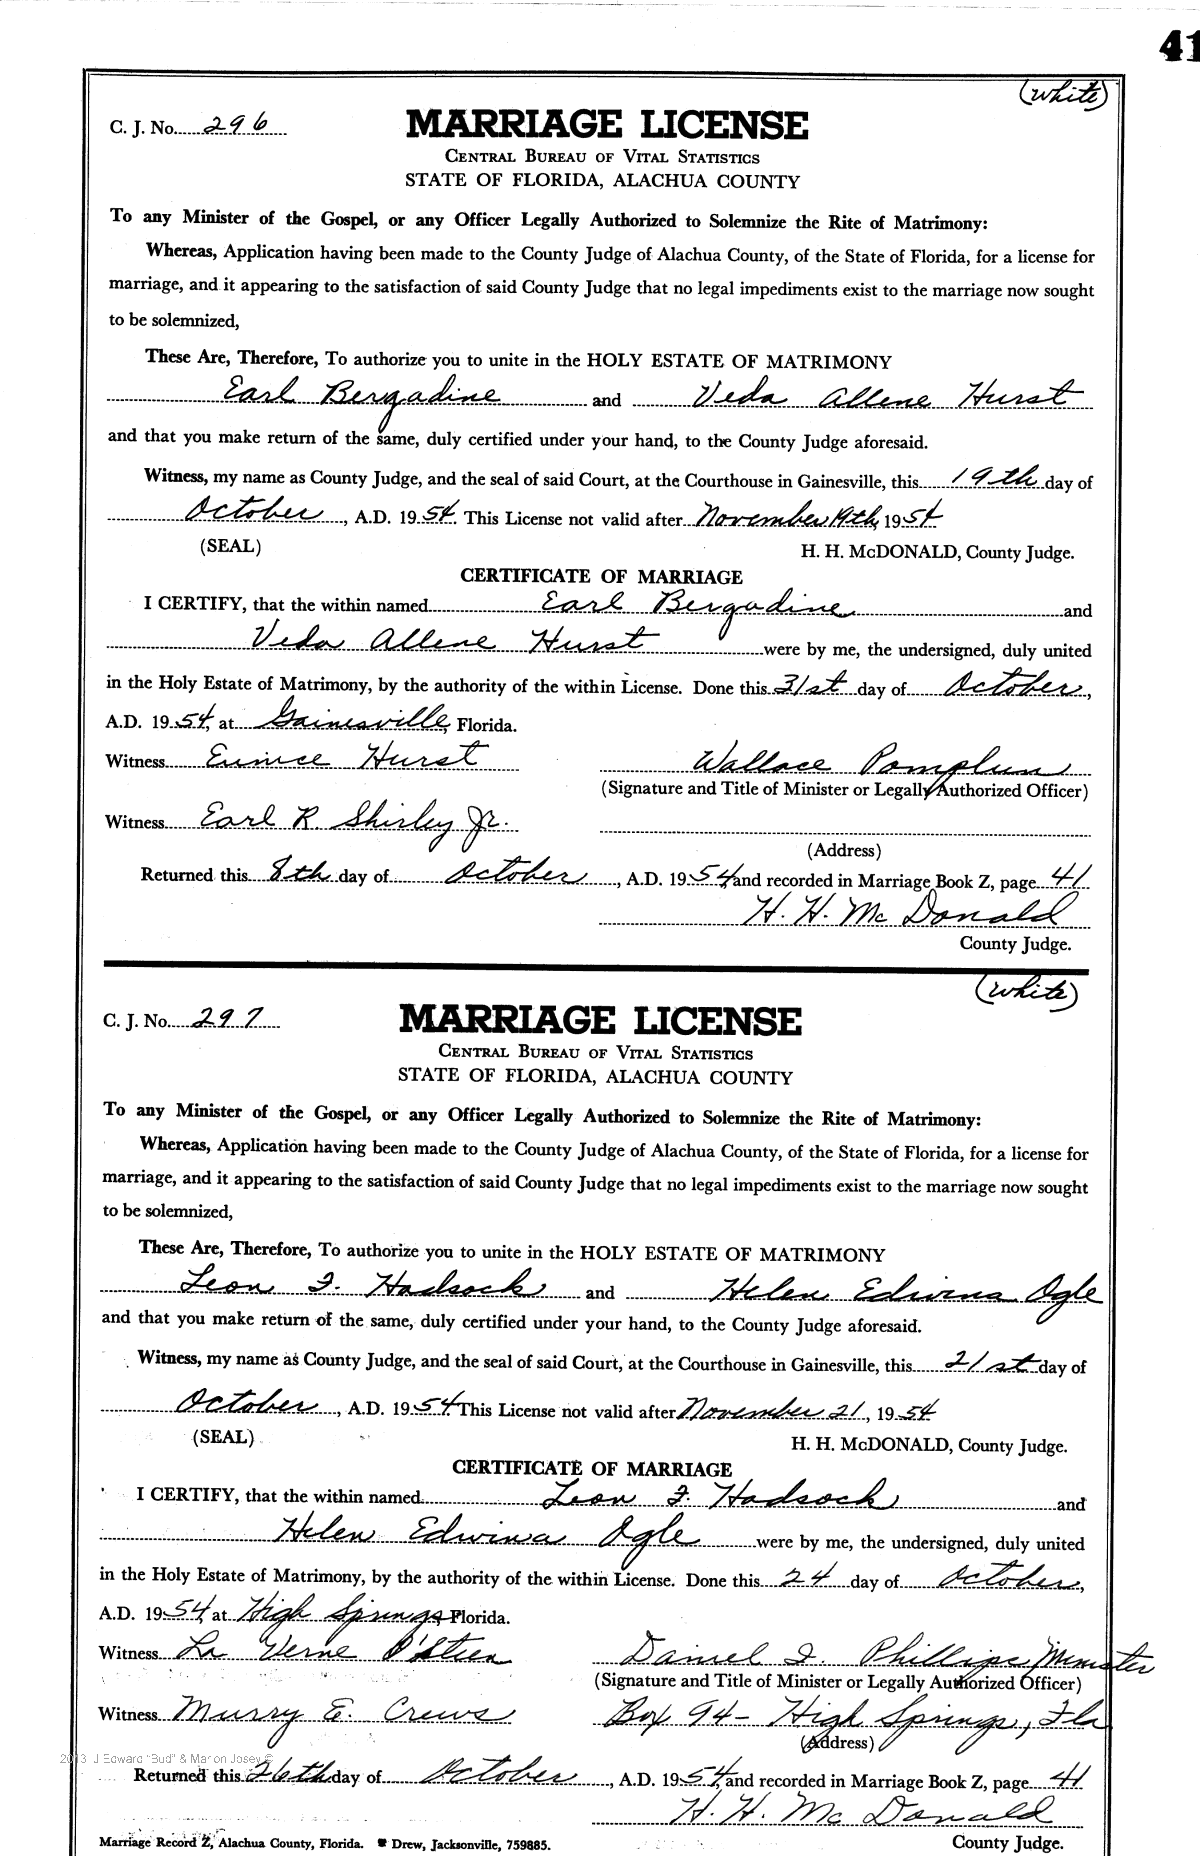 41
(white)
C. J. No. 296
MARRIAGE LICENSE
CENTRAL BUREAU OF VITAL STATISTICS
STATE OF FLORIDA, ALACHUA COUNTY
To any Minister of the Gospel, or any Officer Legally Authorized to Solemnize the Rite of Matrimony:
Whereas, Application having been made to the County Judge of Alachua County, of the State of Florida, for a license for
marriage, and it appearing to the satisfaction of said County Judge that no legal impediments exist to the marriage now sought
to be solemnized,
These Are, Therefore, To authorize you to unite in the HOLY ESTATE OF MATRIMONY
Earl Bergadine and Veda Allene Hurst
and that you make return of the same, duly certified under your hand, to the County Judge aforesaid.
Witness, my name as County Judge, and the seal of said Court, at the Courthouse in Gainesville, this 19th day of
October, A.D. 1954. This License not valid after November 19th, 1954
(SEAL) H. H. McDONALD, County Judge.
CERTIFICATE OF MARRIAGE
I CERTIFY, that the within named Earl Bergadine and
Veda Allene Hurst were by me, the undersigned, duly united
in the Holy Estate of Matrimony, by the authority of the within License. Done this 31st day of October,
A.D. 1954, at Gainesville, Florida.
Witness Eunice Hurst Wallace Pomplun
(Signature and Title of Minister or Legally Authorized Officer)
Witness Earl R. Shirley Jr.
(Address)
Returned this 8th day of October, A.D. 1954, and recorded in Marriage Book Z, page 41
H. H. McDonald
County Judge.
(white)
C. J. No. 297
MARRIAGE LICENSE
CENTRAL BUREAU OF VITAL STATISTICS
STATE OF FLORIDA, ALACHUA COUNTY
To any Minister of the Gospel, or any Officer Legally Authorized to Solemnize the Rite of Matrimony:
Whereas, Application having been made to the County Judge of Alachua County, of the State of Florida, for a license for
marriage, and it appearing to the satisfaction of said County Judge that no legal impediments exist to the marriage now sought
to be solemnized,
These Are, Therefore, To authorize you to unite in the HOLY ESTATE OF MATRIMONY
Leon F. Hadsock and Helen Edwina Ogle
and that you make return of the same, duly certified under your hand, to the County Judge aforesaid.
Witness, my name as County Judge, and the seal of said Court, at the Courthouse in Gainesville, this 21st day of
October, A.D. 1954 This License not valid after November 21, 1954
(SEAL) H. H. McDONALD, County Judge.
CERTIFICATE OF MARRIAGE
I CERTIFY, that the within named Leon F. Hadsock and
Helen Edwina Ogle were by me, the undersigned, duly united
in the Holy Estate of Matrimony, by the authority of the within License. Done this 24 day of October,
A.D. 1954, at High Springs, Florida.
Witness La Verne O'Steen Daniel I. Phillips, Minister
(Signature and Title of Minister or Legally Authorized Officer)
Witness Murry E. Crews Box 94 - High Springs, Fla
(Address)
2013 J Edward "Bud" & Marion Josey ©
Returned this 26th day of October, A.D. 1954, and recorded in Marriage Book Z, page 41
H. H. McDonald
Marriage Record Z, Alachua County, Florida. Drew, Jacksonville, 759885. County Judge.